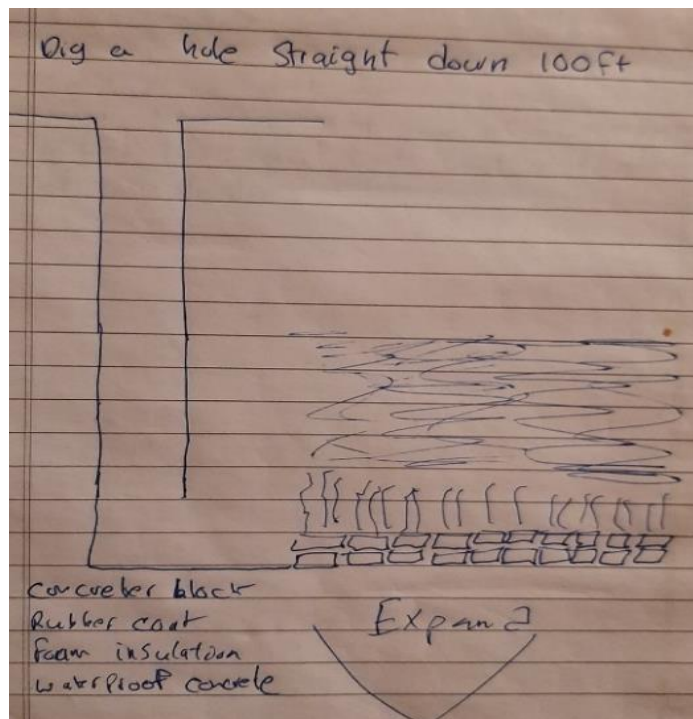 Dig a hole Straight down 100ft
Concreter block
Rubber coat
foam insulation
waterproof concrete
Expand